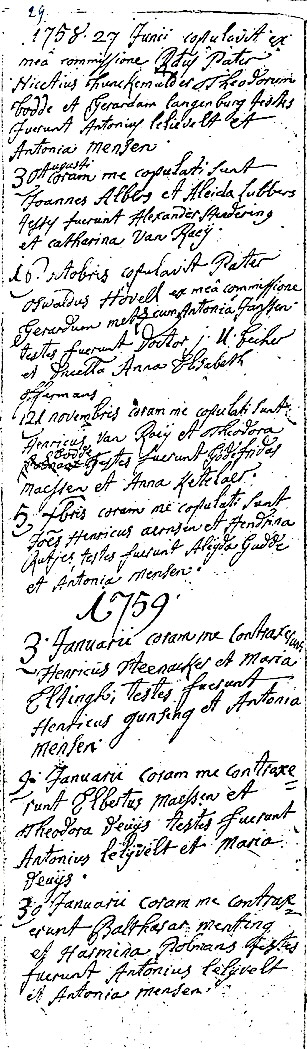 29.
1758. 27 Junii copulavit ex
mea commissione Rdus Pater
Nicetius Dunckemulder Theodorum
bodde et Gerardam langenburg testes
fuerunt Antonius lelivelt et
Antonia mensen.
30 Augusti coram me copulati sunt
Joannes Albers et Aleida lubbers
testes fuerunt Alexander
et catharina van Raeij.
10. 8tobris copulavit Pater
Oswaldus Hövell ex mea commissione
Gerardum metz cum Antonia Janssen
testes fuerunt Doctor J. H. becker
et Anna Elisabeth
offermans.
12 novembris coram me copulati sunt
Henricus van Raeij et Theodora
bodde testes fuerunt Godefridus
maessen et Anna Ketelaer.
5 Xbris coram me copulati sunt
Joës Henricus aernsen et Hendrina
Rutjes testes fuerunt Aleyda
et Antonia mensen.
1759.
3. Januarii coram me contraxerunt
Henricus Steenackes et Maria
Eltingh; testes fuerunt
Henricus gunsing et Antonia
mensen.
9. Januarii coram me contraxe=
runt Elbertus maessen et
Theodora Deuijs testes fuerunt
Antonius lelyvelt et Maria
Deuijs.
30 Januarii coram me contrax=
erunt Balthasar menting
et Harmina Robrans testes
fuerunt Antonius lelyvelt
et Antonia mensen.